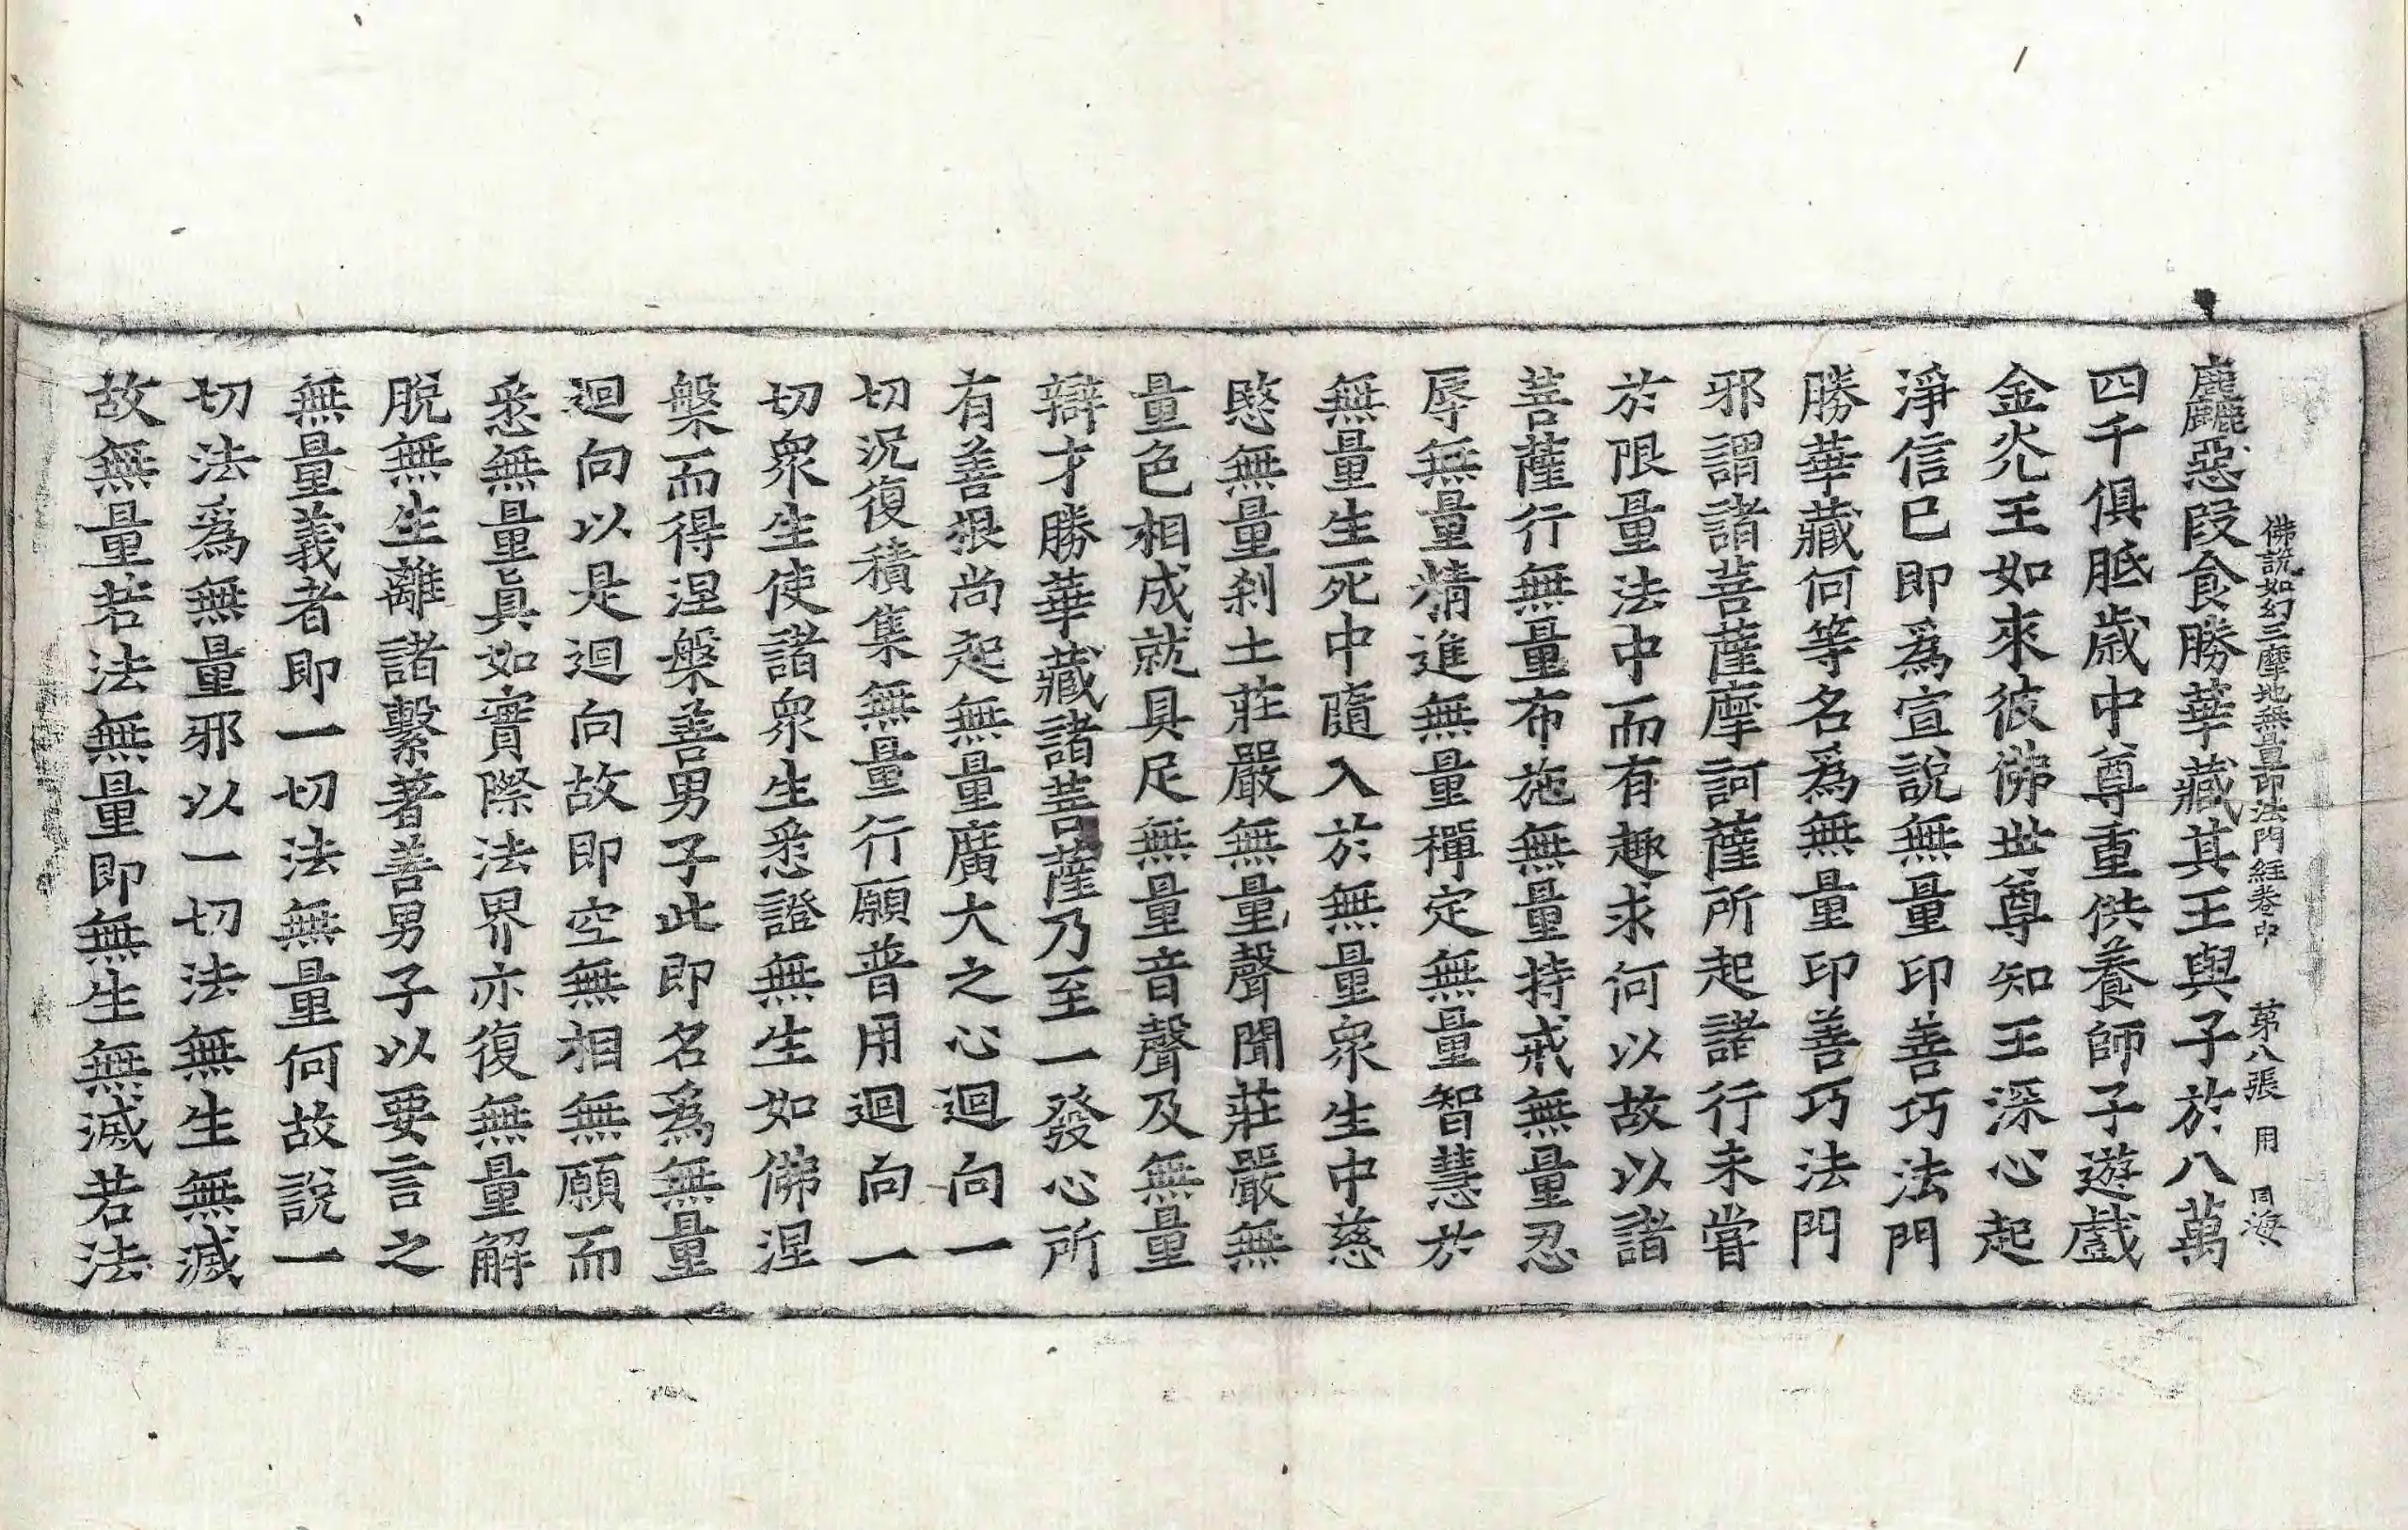 佛說如幻三摩地無量印法門經卷中 第八張 用 海
麤惡段食勝華藏其王與子於八萬
四千俱胝歲中尊重供養師子遊戲
金光王如來彼佛世尊知王深心起
淨信已即爲宣說無量印善巧法門
勝華藏何等名爲無量印善巧法門
邪謂諸菩薩摩訶薩所起諸行未甞
於限量法中而有趣求何以故以諸
菩薩行無量布施無量持戒無量忍
辱無量精進無量禪定無量智慧於
無量生死中隨入於無量衆生中慈
愍無量刹土莊嚴無量聲聞莊嚴無
量色相成就具足無量音聲及無量
辯才勝華藏諸菩薩乃至一發心所
有善根尚起無量廣大之心迴向一
切況復積集無量行願普用迴向一
切衆生使諸衆生悉證無生如佛涅
槃而得涅槃善男子此即名爲無量
迴向以是迴向故即空無相無願而
悉無量眞如實際法界亦復無量解
脫無生離諸繫著善男子以要言之
無量義者即一切法無量何故說一
切法爲無量邪以一切法無生無滅
故無量若法無量即無生無滅若法